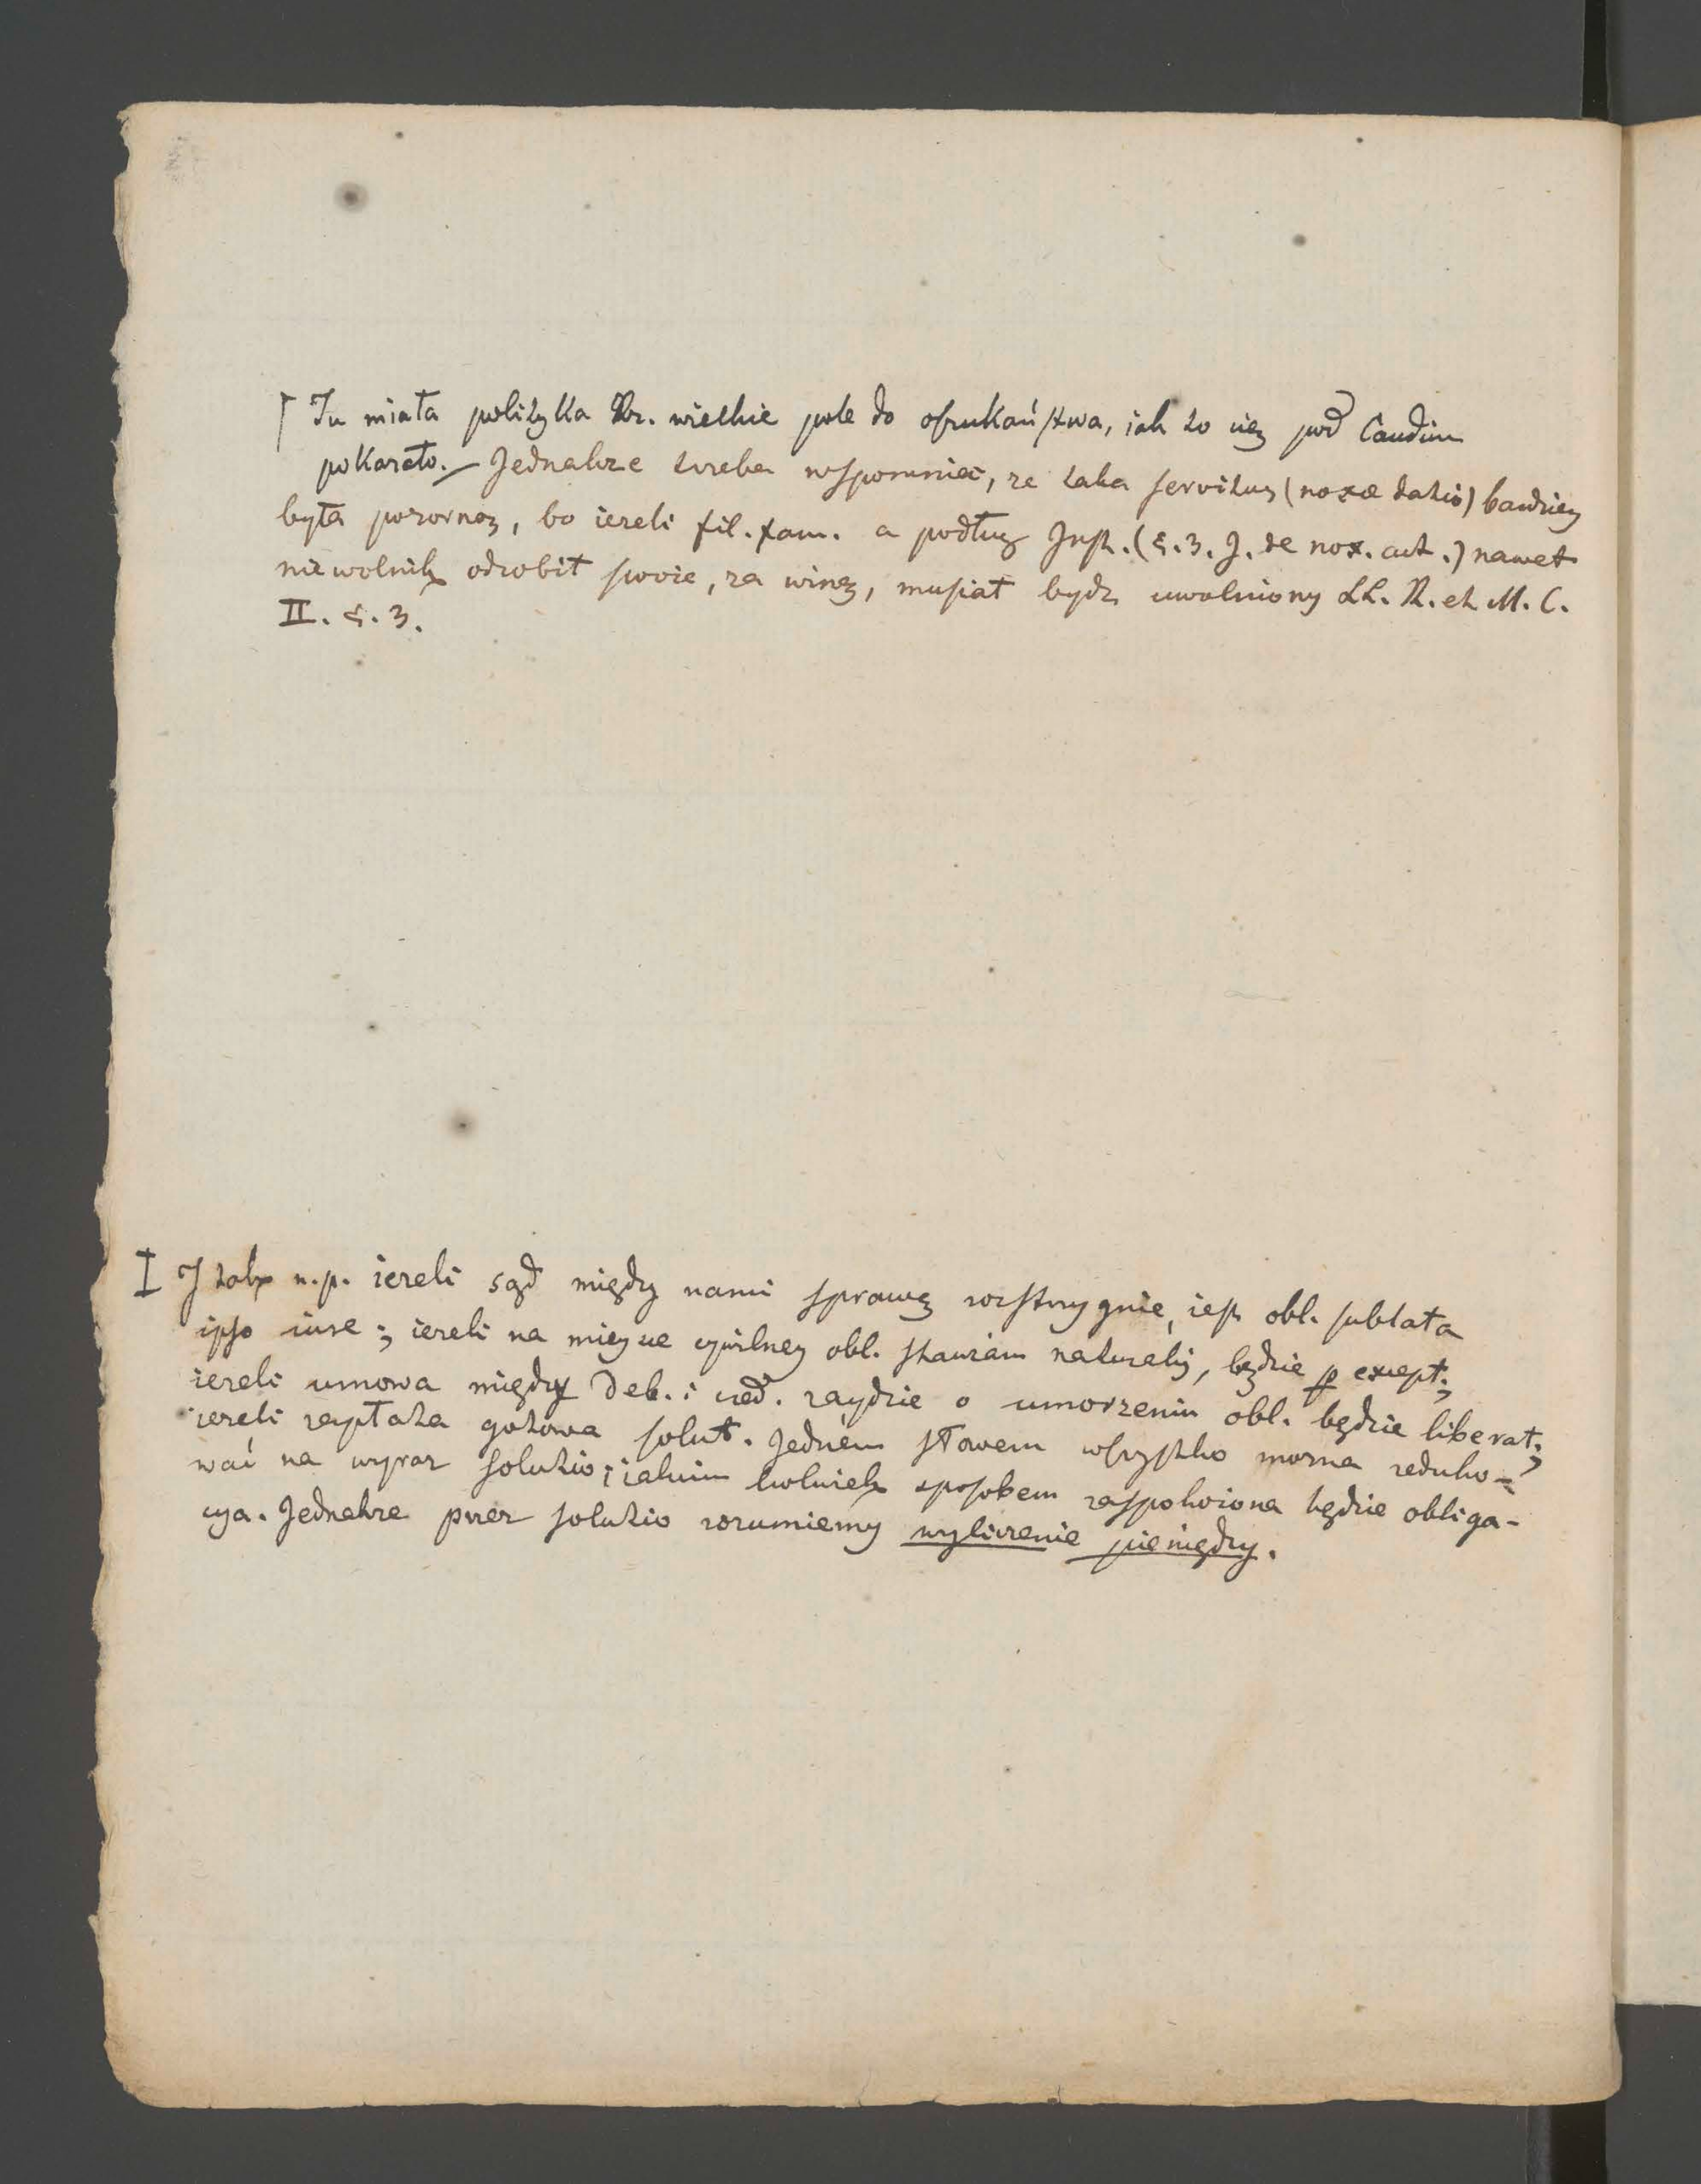 ⌈ Tu miała polityka Rz. wielkie pole do oszukaństwa, iak to się pod Caudium
pokazało. – Jednakże trzeba wspomnieć, że taka servitus (noxæ datio) bardziey
była pozorną, bo ieżeli fil. fam. a podług Inst. (§. 3. J. de nox. act.) nawet
niewolnik odrobił swoie, za winę, musiał bydź uwolniony LL. R. et M. C.
II. §. 3.
I I tak n.p. ieżeli sąd między nami sprawę rozstrzygnie, iest obl. sublata
ipso iure; ieżeli na mieysce cywilney obl. stawiam naturalis, będzie p except;
ieżeli umowa między Deb. i cred. zaydzie o umorzeniu obl. będzie liberat;
ieżeli zapłata gotowa solut. Jedném słowem wszystko można reduko-
wać na wyraz solutio; iakim kolwiek sposobem zaspokoiona będzie obliga-
cya. Jednakże przez solutio rozumiemy wyliczenie pieniędzy.